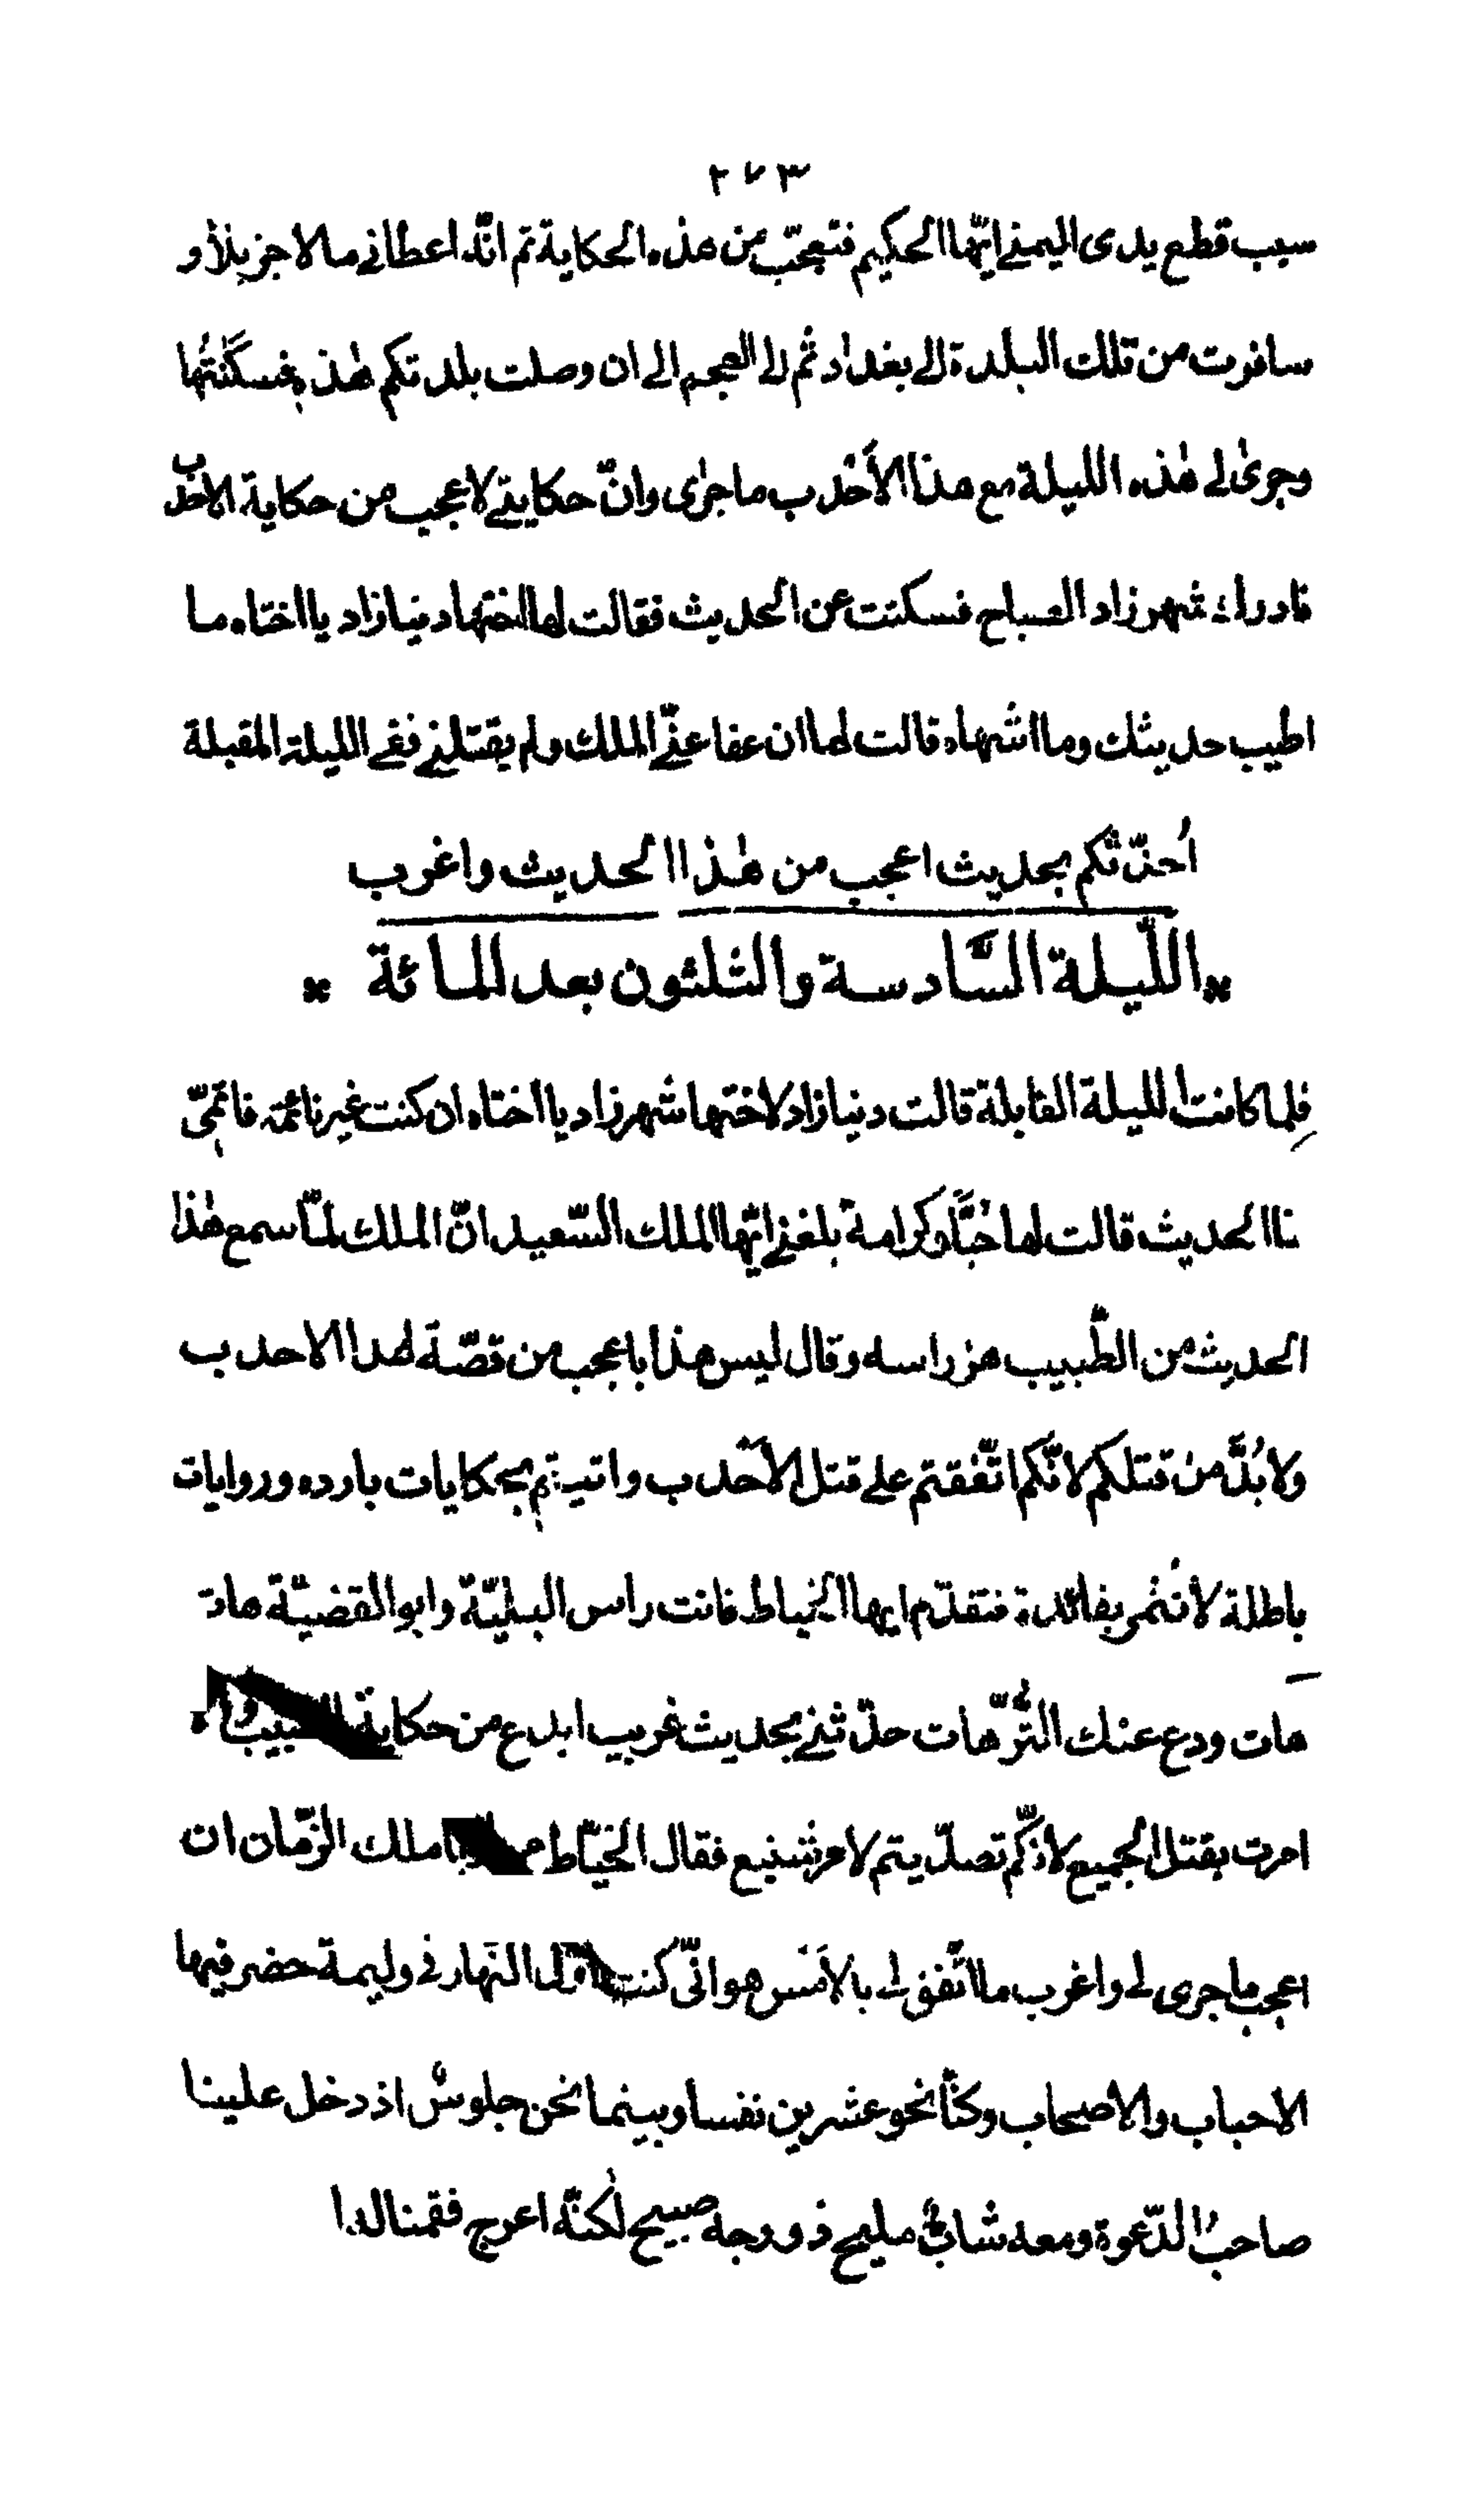 ٢٧٣
سبب قطع يدى اليمنى ايّها الحكيم فتعجّب من هذه الحكاية ثم انّه اعطانى مالا جزيلاً و
سافرت من تلك البلدة الى بغداد ثم الى العجم الى ان وصلت بلدتكم هٰذه فسكنتُها
وجرىٰ لى هٰذه الليلة مع هذا الأحْدب ما جرٰى وانّ حكايتى لاعجب من حكاية الاحدب
فادرك شهرزاد الصباح فسكتت عن الحديث فقالت لها اختها دنيازاد يا اختاه ما
اطيب حديثك وما اشهاه قالت لها ان عفا عنّى الملك ولم يقتلنى ففى الليلة المقبلة
اُحدّثكم بحديث اعجب من هٰذا الحديث واغرب
* الليلة السّادسة والثلثون بعد المائة *
فلما كانت الليلة القابلة قالت دنيازاد لاختها شهرزاد يا اختاه ان كنت غير نائمة فاتمّى
لنا الحديث قالت لها حُبّاً وكرامة بلغنى ايّها الملك السّعيد انّ الملك لمّا سمع هٰذا
الحديث من الطّبيب هز راسه وقال ليس هذا باعجب من قصّة هذا الاحدب
ولا بُدَّ من قتلكم لانّكم اتّفقتم على قتل الأحدب واتيتم بحكايات بارده وروايات
باطلة لا تُثمر بفائدة فتقدّم ايها الخياط فانت راس البليّة وابو القضيّة هات
هات ودع عنك التُّرّهات حدّثنى بحديث غريب ابدع من حكاية الطبيب والا
امرت بقتل الجميع لانّكم تصدّيتم لامر شنيع فقال الخيّاط يا ملك الزّمان ان
اعجب ما جرى لى واغرب ما اتّفق لى بالأمس هو انّى كنت اول النّهار فى وليمة حضر فيها
الاحباب والاصحاب وكنّا نحو عشرين نفسا وبينما نحن جلوسٌ اذ دخل علينا
صاحبُ الدّعوة ومعه شابٌّ مليح ذو وجه صبيح لٰكنّه اعرج فقمنا له ا